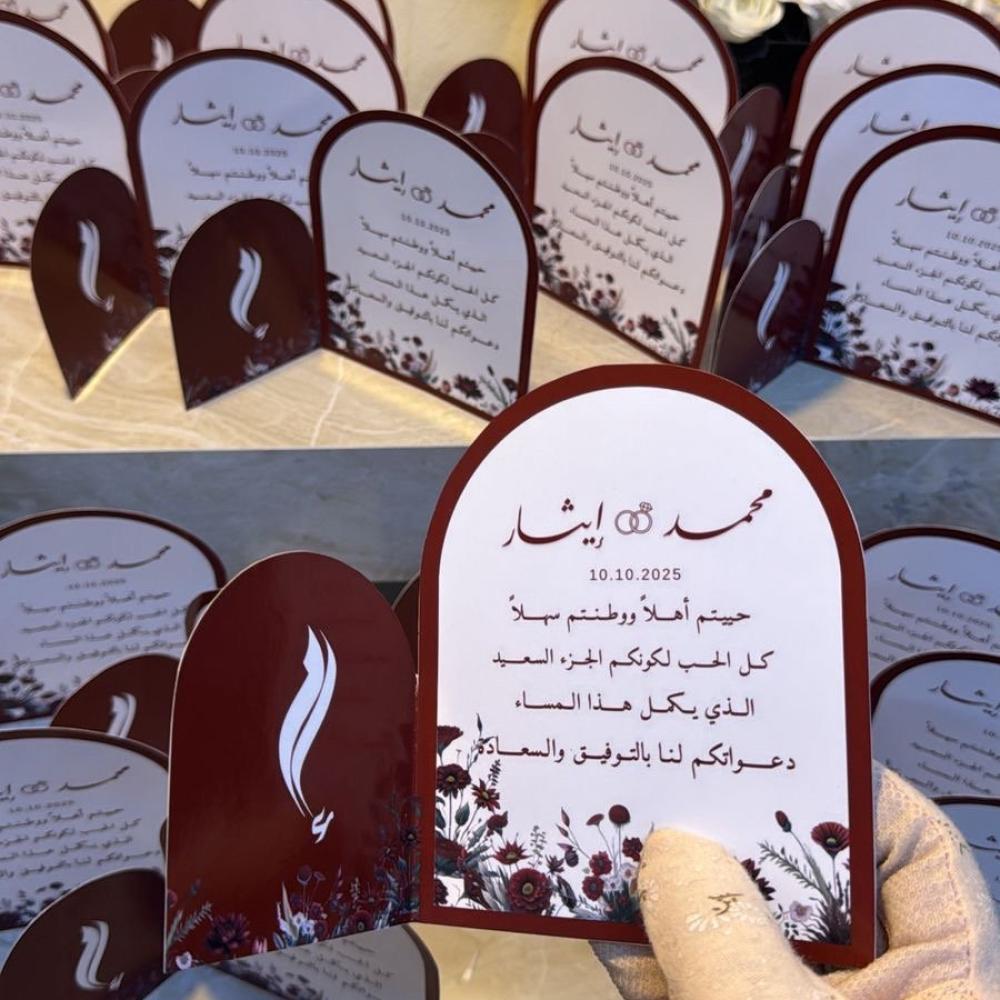 محمد إيثار
10.10.2025
حييتم أهلاً ووطنتم سهلاً
كل الحب لكونكم الجزء السعيد
الذي يكمل هذا المساء
دعواتكم لنا بالتوفيق والسعادة